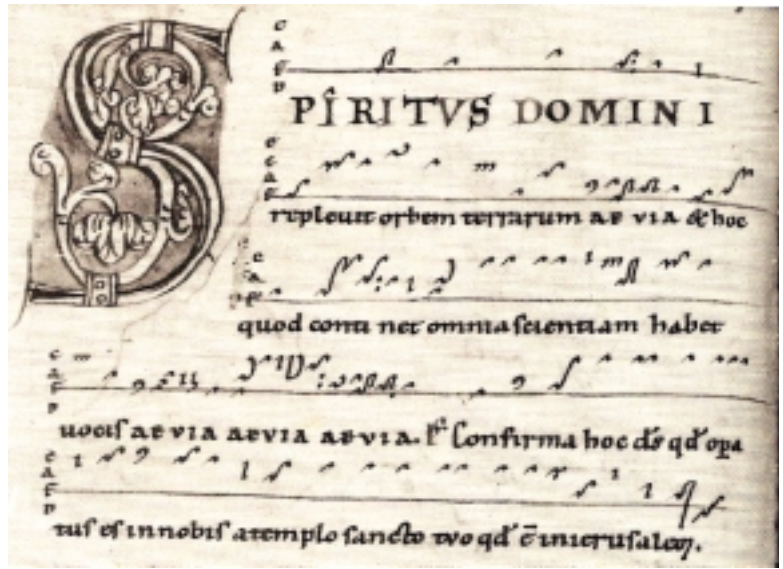 SPIRITVS DOMINI
repleuit orbem terrarum AEVIA & hoc
quod conti net omnia scientiam habet
uocis AEVIA AEVIA AEVIA. Confirma hoc ds qd opa
tus es in nobis a templo sancto tuo qd ē in ierusalem.